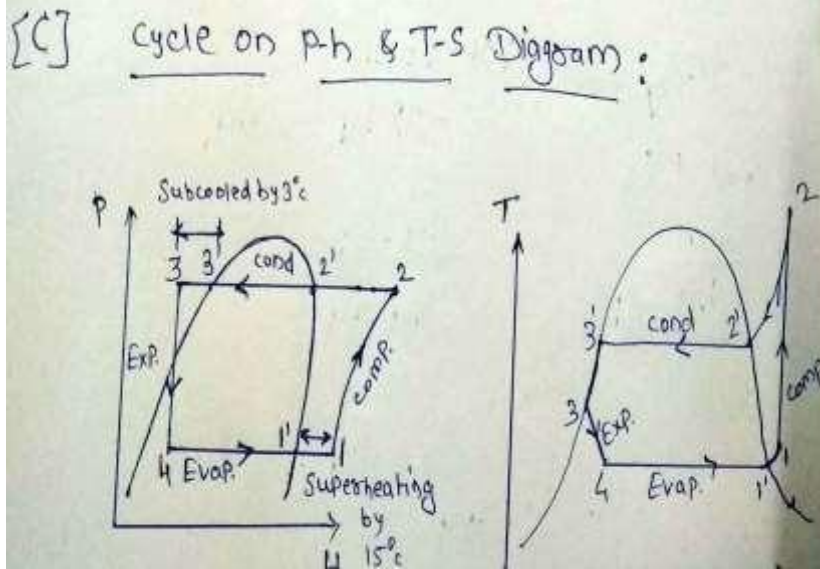 [C] Cycle on P-h & T-S Diagram :
Subcooled by 3°c
P
3 3' cond 2' 2
Exp.
comp.
1' 1
4 Evap.
Superheating
by
15°c
H
T
2
3' cond 2'
3
Exp.
comp
4 Evap. 1' 1